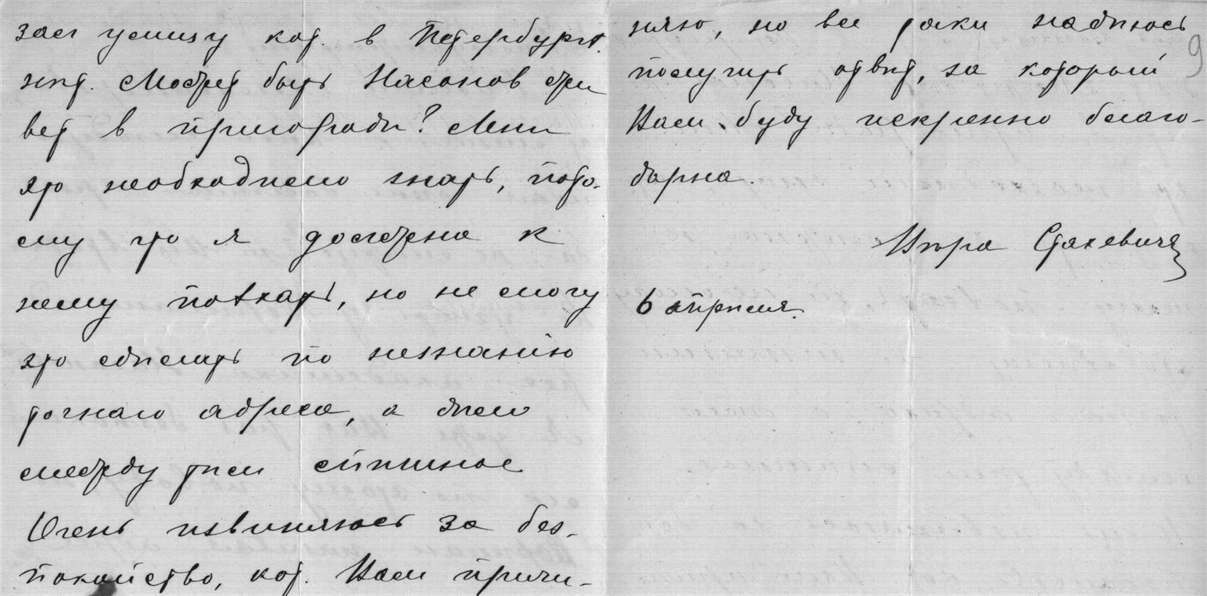 зает улицу кот. в Петербургѣ
нѣт. Может быть Насонов жи
вет в пригороди? Мнѣ
это необходимо знать, пото-
му что я должна к
нему поѣхать, но не могу
это сдѣлать по незнанію
точнаго адреса, а дѣло
между тѣм спѣшное
Очень извиняюсь за без-
покойство, кот. Вам причи-
няю, но все таки надѣюсь
получить отвѣт, за который
Вам буду искренно благо-
дарна.
Стахевичъ
6 апрѣля.
9